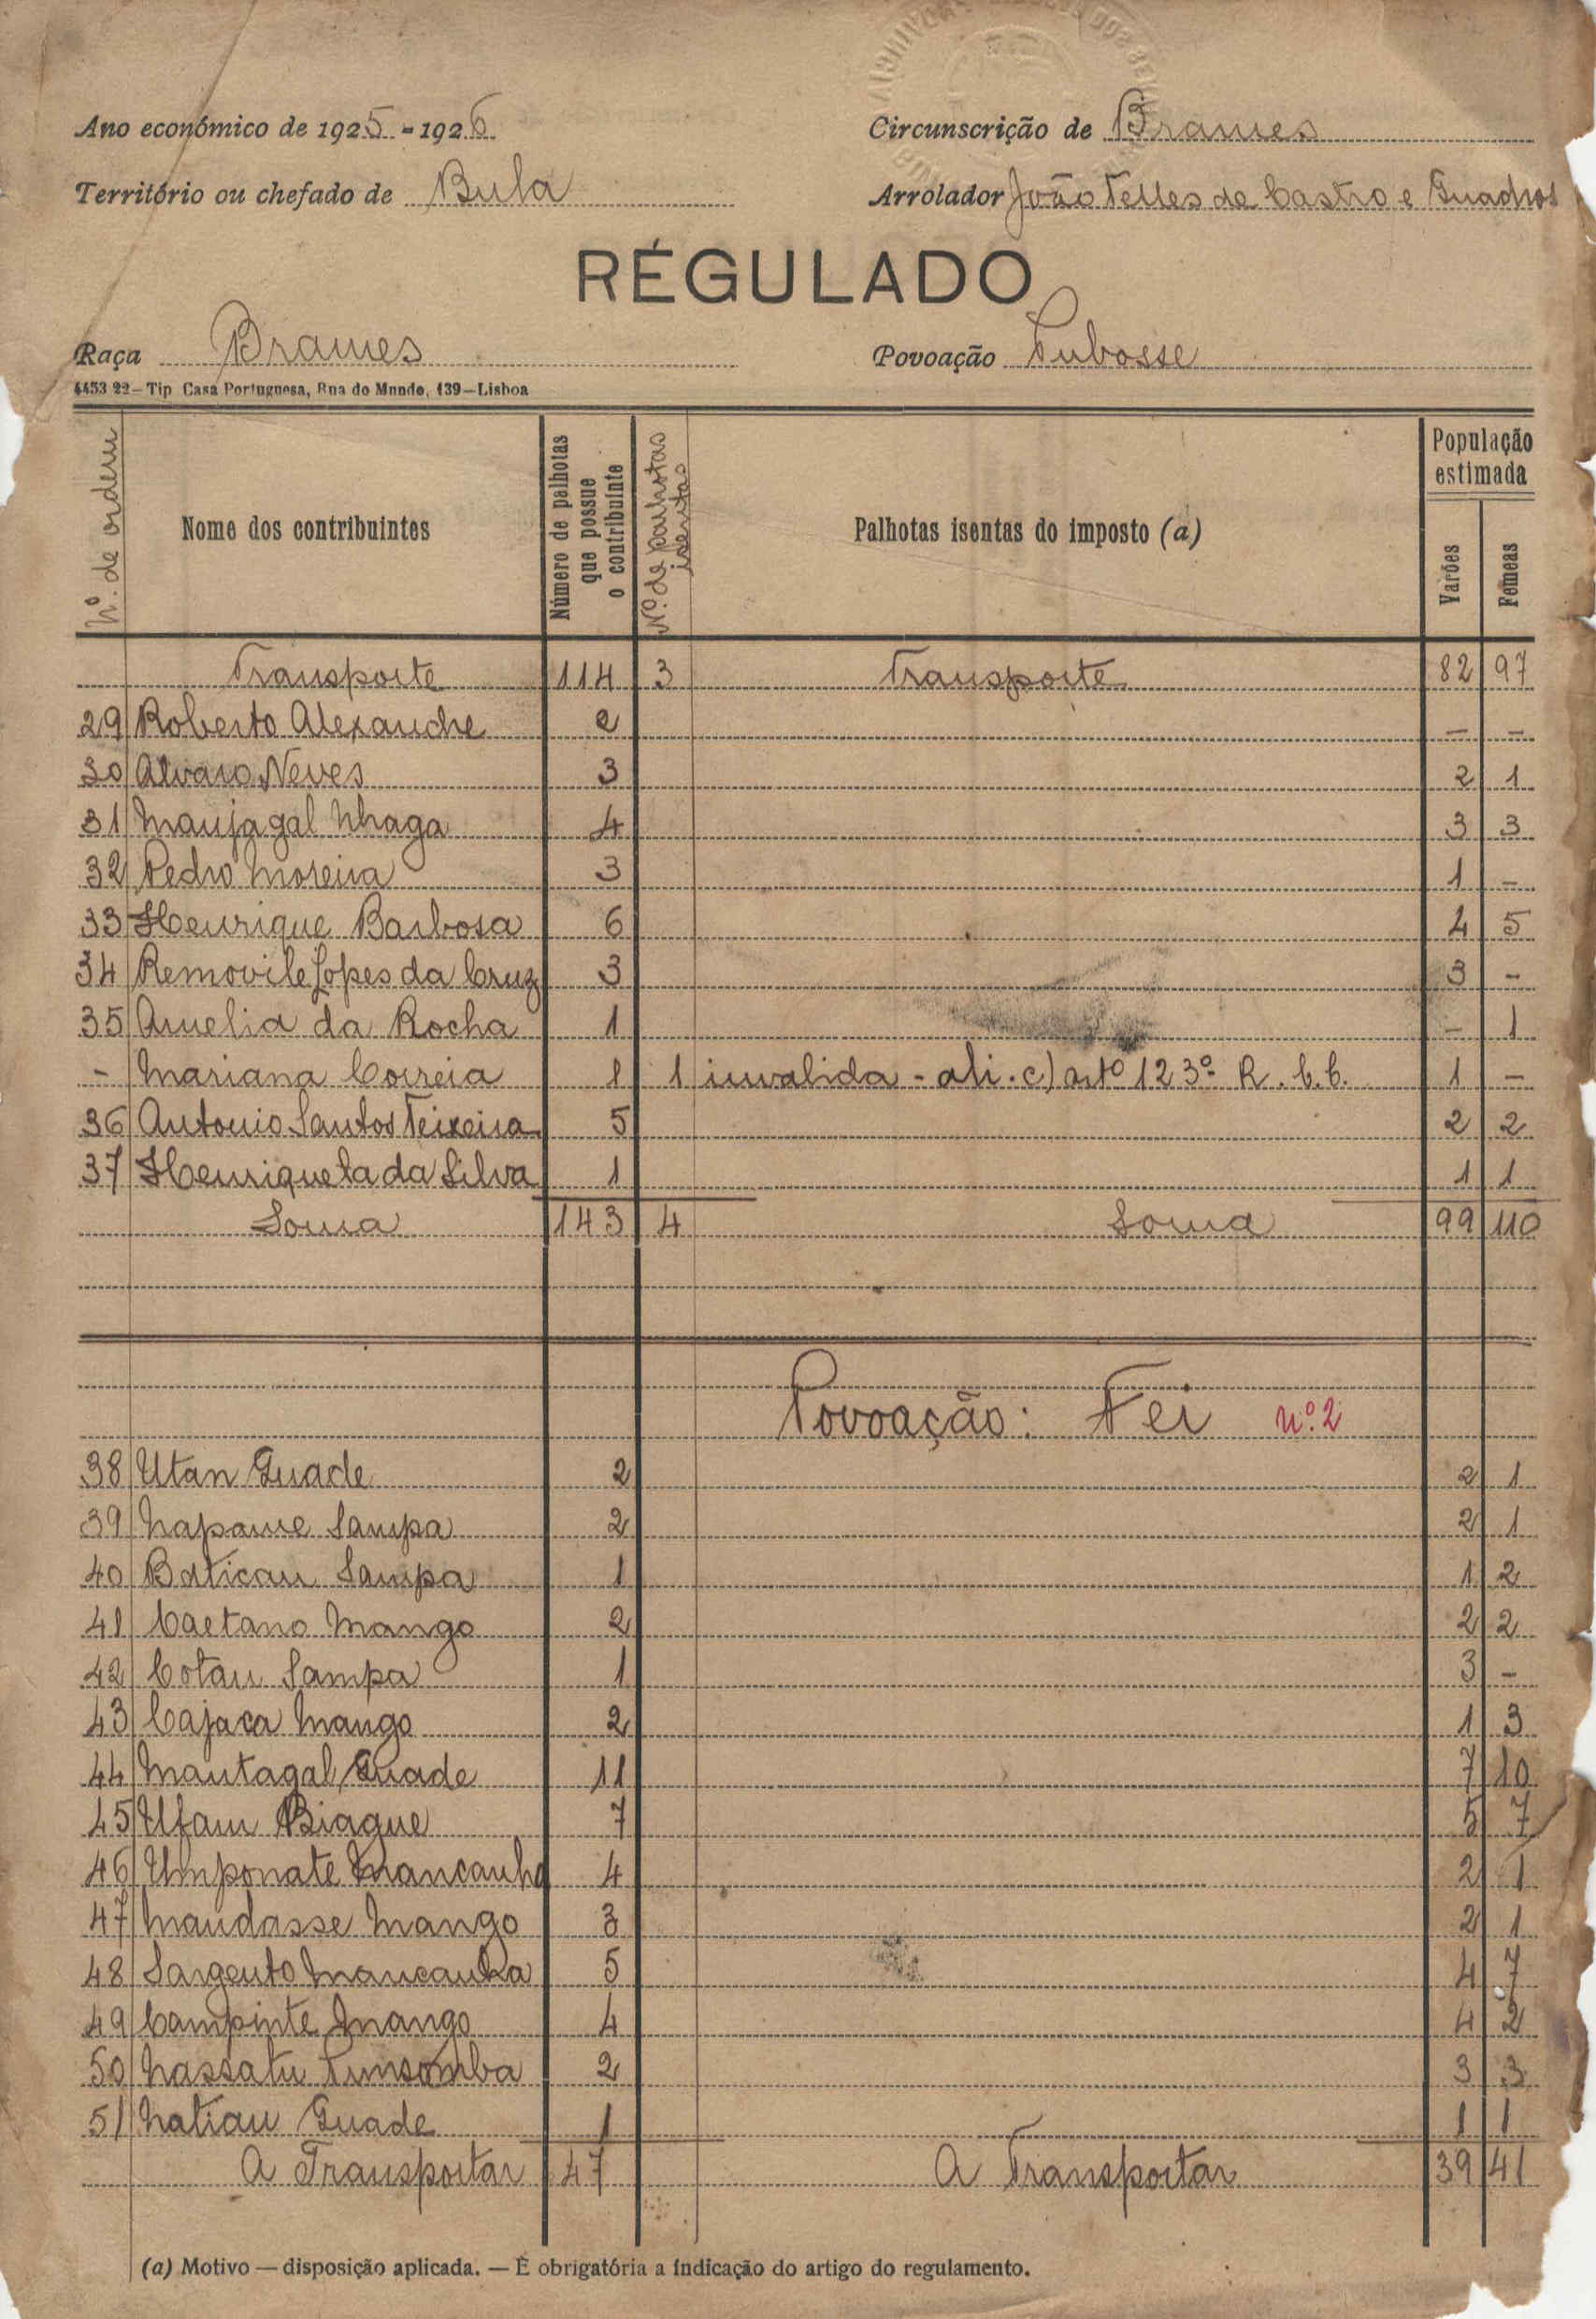 Ano económico de 1925-1926
Circunscrição de Brames
Território ou chefado de Bula
Arrolador João Telles de Castro e Quadros
RÉGULADO
Raça Brames
Povoação Pubosse
4453 22—Tip Casa Portuguesa, Rua do Mundo, 139—Lisboa
Nº. de ordem
Nome dos contribuintes
Número de palhotas que possue o contribuinte
Nº. de palhotas isentas
Palhotas isentas do imposto (a)
População estimada
Varões
Femeas
Transporte 114 3 Transporte 82 97
29 Roberto Alexandre 2 - -
30 Alvaro Neves 3 2 1
31 Manjagal Nhaga 4 3 3
32 Pedro Moreira 3 1 -
33 Henrique Barbosa 6 4 5
34 Removile Lopes da Cruz 3 3 -
35 Amelia da Rocha 1 - 1
- Mariana Correia 1 1 invalida - ali. c) artº 123º R. C. C. 1 -
36 Antonio Santos Teixeira 5 2 2
37 Henriqueta da Silva 1 1 1
Soma 143 4 Soma 99 110
Povoação: Fei nº. 2
38 Utan Quade 2 2 1
39 Napame Sampa 2 2 1
40 Batican Sampa 1 1 2
41 Caetano Mango 2 2 2
42 Cotan Sampa 1 3 -
43 Cajaca Mango 2 1 3
44 Mantagal Quade 11 7 10
45 Ufam Biague 7 5 7
46 Umponate Mancanha 4 2 1
47 Mandasse Mango 3 2 1
48 Sargento Mancanha 5 4 7
49 Campinte Mango 4 4 2
50 Nassatu Pumsomba 2 3 3
51 Natian Quade 1 1 1
A Transportar 47 A Transportar 39 41
(a) Motivo — disposição aplicada. — É obrigatória a indicação do artigo do regulamento.